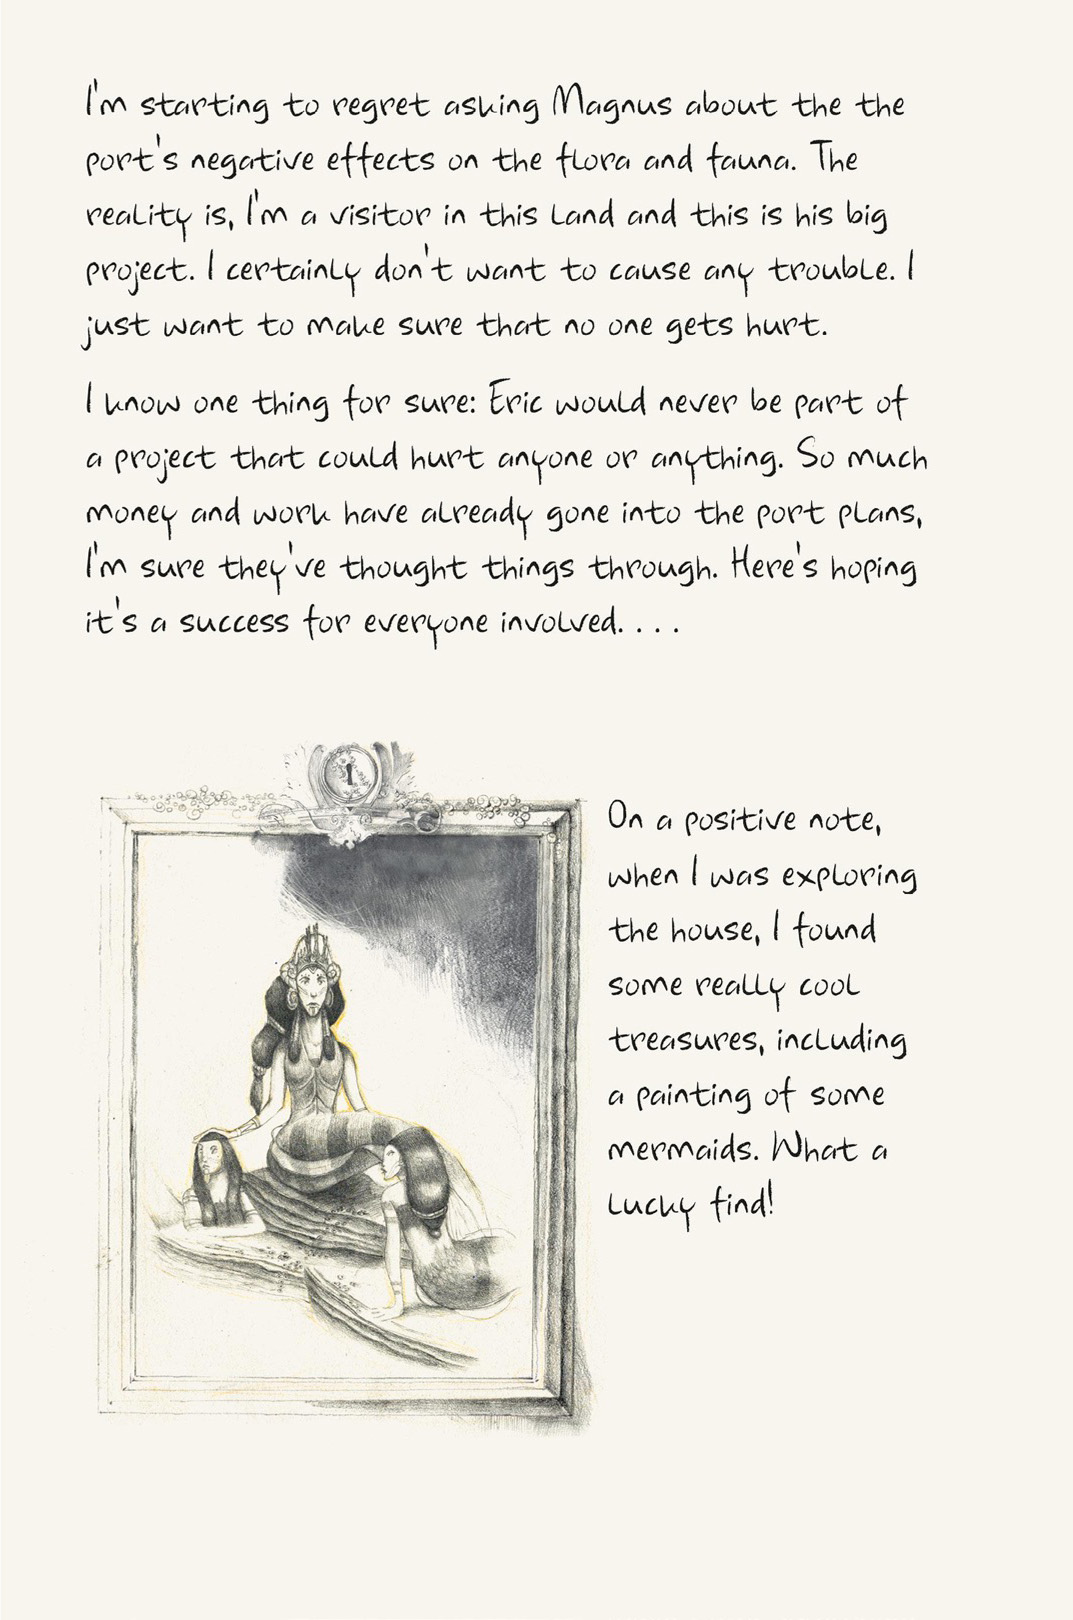 I'm starting to regret asking Magnus about the the
port's negative effects on the flora and fauna. The
reality is, I'm a visitor in this land and this is his big
project. I certainly don't want to cause any trouble. I
just want to make sure that no one gets hurt.
I know one thing for sure: Eric would never be part of
a project that could hurt anyone or anything. So much
money and work have already gone into the port plans,
I'm sure they've thought things through. Here's hoping
it's a success for everyone involved. . . .
On a positive note,
when I was exploring
the house, I found
some really cool
treasures, including
a painting of some
mermaids. What a
lucky find!